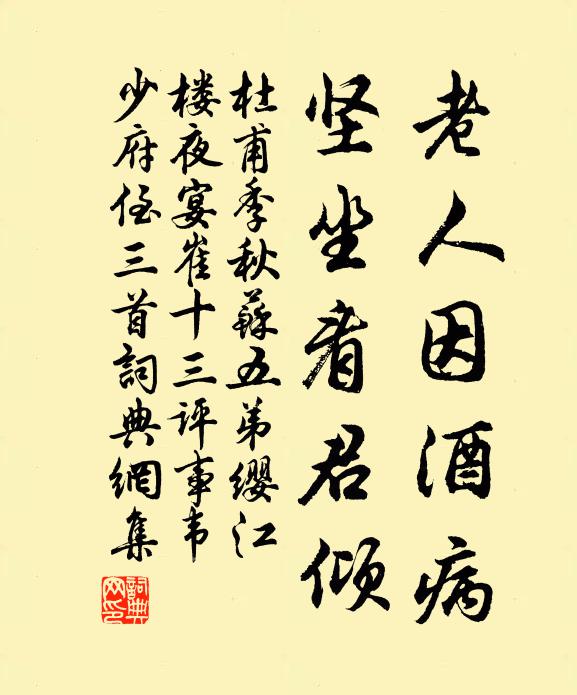 老人因酒病
坚坐看君倾
杜甫季秋蘇五弟纓江
楼夜宴崔十三评事韦
少府侄三首詞典網集
詞典
网印